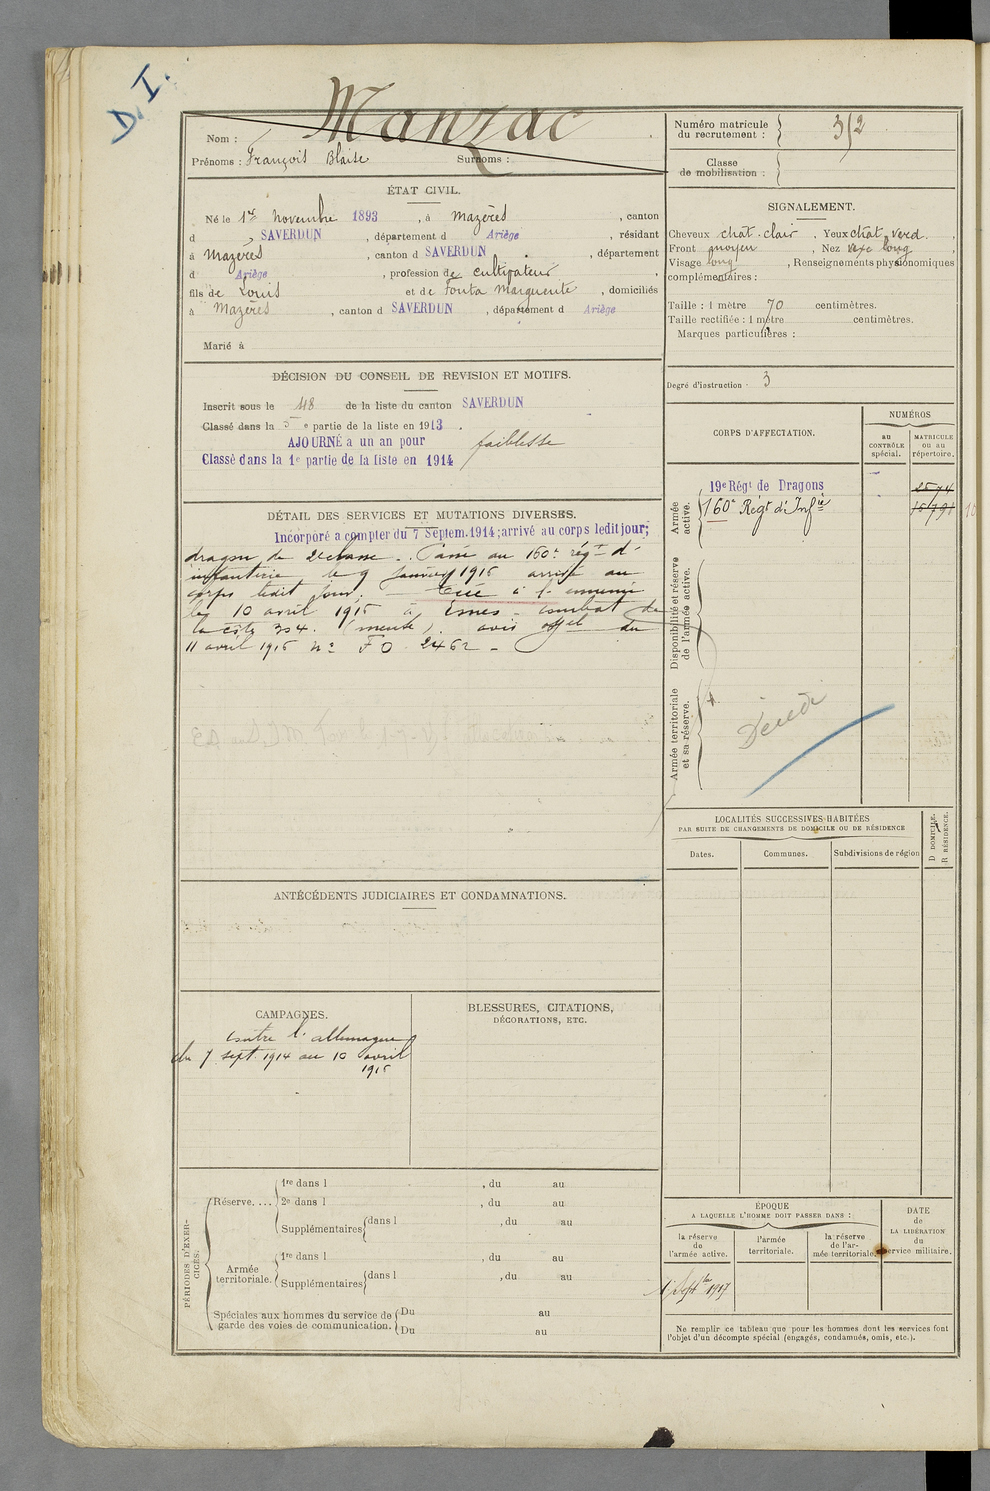 D.I.
Nom : Manzac
Prénoms : François Blaise Surnoms :
Numéro matricule
du recrutement : 312
Classe
de mobilisation :
ÉTAT CIVIL.
Né le 1er novembre 1893, à Mazères, canton
d SAVERDUN, département d Ariège, résidant
à Mazères, canton d SAVERDUN, département
d Ariège, profession de cultivateur,
fils de Louis et de Fonta Marguerite, domiciliés
à Mazères, canton d SAVERDUN, département d Ariège
Marié à
SIGNALEMENT.
Cheveux chat. clair, Yeux chat verd.,
Front moyen, Nez long
Visage long, Renseignements physionomiques
complémentaires :
Taille : 1 mètre 70 centimètres.
Taille rectifiée : 1 mètre centimètres.
Marques particulières :
Degré d'instruction. 3
DÉCISION DU CONSEIL DE REVISION ET MOTIFS.
Inscrit sous le 48 de la liste du canton SAVERDUN
Classé dans la 5e partie de la liste en 1913.
AJOURNÉ a un an pour faiblesse
Classé dans la 1e partie de la liste en 1914
CORPS D'AFFECTATION.
NUMÉROS
au
CONTRÔLE
spécial.
MATRICULE
ou au
répertoire.
Armée
active.
19e Régt de Dragons
160e Régt d'Infie
Disponibilité et réserve
de l'armée active.
Armée territoriale
et sa réserve.
DÉTAIL DES SERVICES ET MUTATIONS DIVERSES.
Incorporé a compter du 7 Septem. 1914; arrivé au corps ledit jour;
dragon de 2e classe. Passé au 160e régt d'
infanterie le 9 Janvier 1915 arrivé au
corps ledit jour. Tué à l'ennemi
le 10 avril 1915 à combat de
la côte 304. avis offel du
11 avril 1915 no FO 2462
LOCALITÉS SUCCESSIVES HABITÉES
PAR SUITE DE CHANGEMENTS DE DOMICILE OU DE RÉSIDENCE
D DOMICILE.
R RÉSIDENCE.
Dates.
Communes.
Subdivisions de région
ANTÉCÉDENTS JUDICIAIRES ET CONDAMNATIONS.
CAMPAGNES.
contre l'allemagne
du 7 sept. 1914 au 10 avril
1915
BLESSURES, CITATIONS,
DÉCORATIONS, ETC.
PÉRIODES D'EXER-
CICES.
Réserve....
1re dans l , du au
2e dans l , du au
Supplémentaires dans l , du au
Armée
territoriale.
1re dans l , du au
Supplémentaires dans l , du au
Spéciales aux hommes du service de
garde des voies de communication.
Du au
Du au
ÉPOQUE
A LAQUELLE L'HOMME DOIT PASSER DANS :
la réserve
de
l'armée active.
l'armée
territoriale.
la réserve
de l'ar-
mée territoriale.
DATE
de
LA LIBÉRATION
du
service militaire.
1 Septbre 1917
Ne remplir ce tableau que pour les hommes dont les services font
l'objet d'un décompte spécial (engagés, condamnés, omis, etc.).